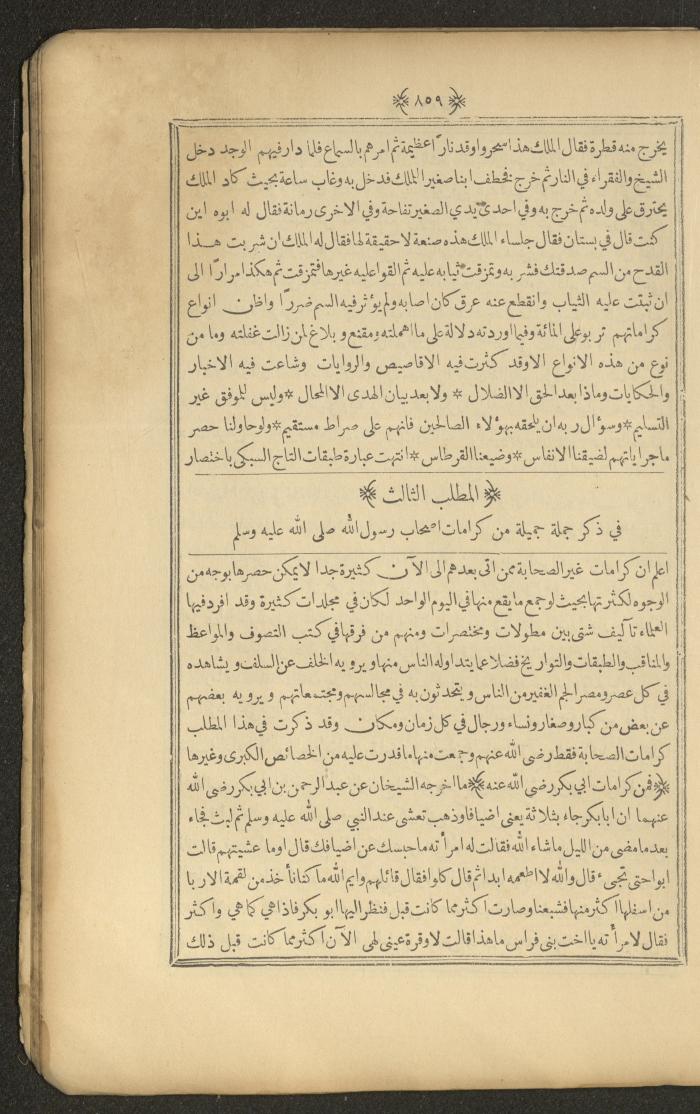 ﴿ ٨٥٩ ﴾
يخرج منه قطرة فقال الملك هذا سحر واوقد نارًا عظيمة ثم امرهم بالسماع فلما دار فيهم الوجد دخل
الشيخ والفقراء في النار ثم خرج فخطف ابنا صغيرا للملك فدخل به وغاب ساعة بحيث كاد الملك
يحترق على ولده ثم خرج به وفي احدى يدي الصغير تفاحة وفي الاخرى رمانة فقال له ابوه اين
كنت قال في بستان فقال جلساء الملك هذه صنعة لا حقيقة لها فقال له الملك ان شربت هــذا
القدح من السم صدقتك فشربه وتمزقت ثيابه عليه ثم القوا عليه غيرها فتمزقت ثم هكذا مرارًا الى
ان ثبتت عليه الثياب وانقطع عنه عرق كان اصابه ولم يؤثر فيه السم ضررًا واظن انواع
كراماتهم تربو على المائة وفيما اوردته دلالة على ما اهملته ومقنع وبلاغ لمن زالت غفلته وما من
نوع من هذه الانواع الا وقد كثرت فيه الاقاصيص والروايات وشاعت فيه الاخبار
والحكايات وماذا بعد الحق الا الضلال * ولا بعد بيان الهدى الا المحال * وليس للموفق غير
التسليم * وسؤال ربه ان يلحقه بهؤلاء الصالحين فانهم على صراط مستقيم * ولو حاولنا حصر
ماجراياتهم لضيقنا الانفاس * وضيعنا القرطاس * انتهت عبارة طبقات التاج السبكي باختصار
﴿ المطلب الثالث ﴾
في ذكر جملة جميلة من كرامات اصحاب رسول الله صلى الله عليه وسلم
اعلم ان كرامات غير الصحابة ممن اتى بعدهم الى الآن كثيرة جدا لا يمكن حصرها بوجه من
الوجوه لكثرتها بحيث لو جمع ما يقع منها في اليوم الواحد لكان في مجلدات كثيرة وقد افرد فيها
العلماء تآليف شتى بين مطولات ومختصرات ومنهم من فرقها في كتب التصوف والمواعظ
والمناقب والطبقات والتواريخ فضلا عما يتداوله الناس منها ويرويه الخلف عن السلف ويشاهده
في كل عصر ومصر الجم الغفير من الناس ويتحدثون به في مجالسهم ومجتمعاتهم ويرويه بعضهم
عن بعض من كبار وصغار ونساء ورجال في كل زمان ومكان وقد ذكرت في هذا المطلب
كرامات الصحابة فقط رضى الله عنهم وجمعت منها ما قدرت عليه من الخصائص الكبرى وغيرها
﴿ فمن كرامات ابي بكر رضى الله عنه ﴾ ما اخرجه الشيخان عن عبد الرحمن بن ابي بكر رضى الله
عنهما ان ابا بكر جاء بثلاثة يعنى اضيافا وذهب تعشى عند النبي صلى الله عليه وسلم ثم لبث فجاء
بعد ما مضى من الليل ما شاء الله فقالت له امرأته ما حبسك عن اضيافك قال او ما عشيتهم قالت
ابوا حتى تجيء قال والله لا اطعمه ابدا ثم قال كلوا فقال قائلهم وايم الله ما كنا نأخذ من لقمة الا ربا
من اسفلها اكثر منها فشبعنا وصارت اكثر مما كانت قبل فنظر اليها ابو بكر فاذا هي كما هي واكثر
فقال لامرأته يا اخت بنى فراس ما هذا قالت لا وقرة عينى لهى الآن اكثر مما كانت قبل ذلك